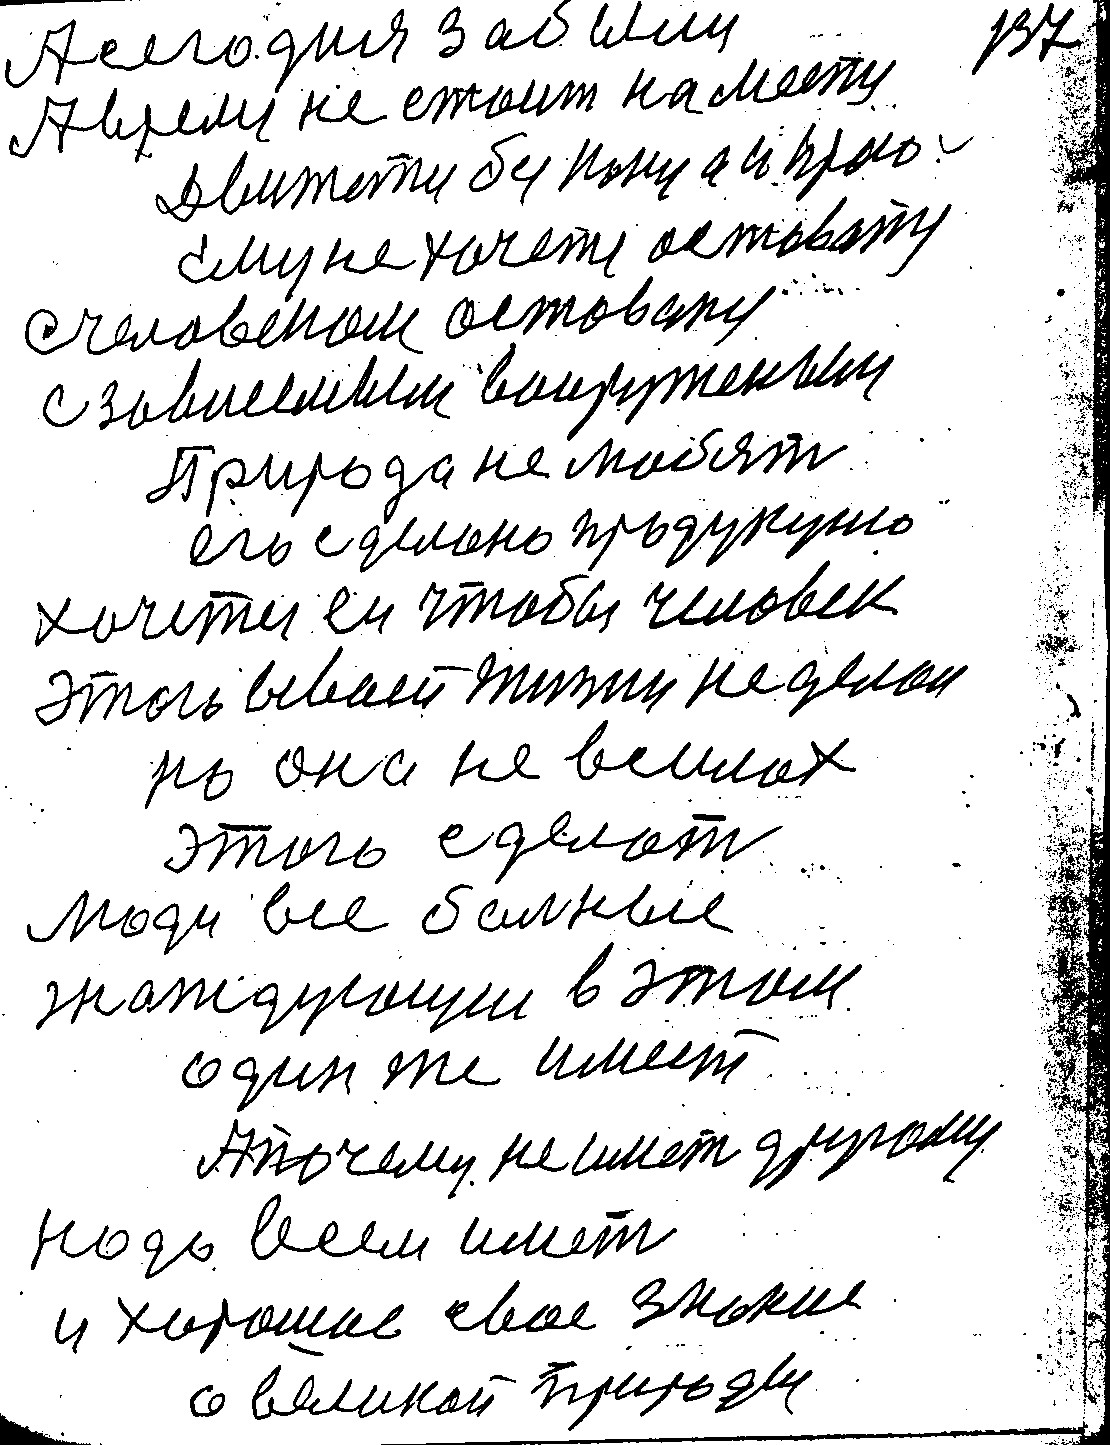 А сегодня забыли 137
А время не стоит на месту
движети бу
ему не хочети остовату
с человеком остовату
с зависемым вооруженым
Природа не любят
его сделано продукцию
хочети ей чтобы человек
этого в своей жизни не делал
но она не в силах
этого сделат
люди все болные
нождующии в этом
один же имеет
А почему не имет другому
надо всем имет
и хорошое свое знание
о великой природы